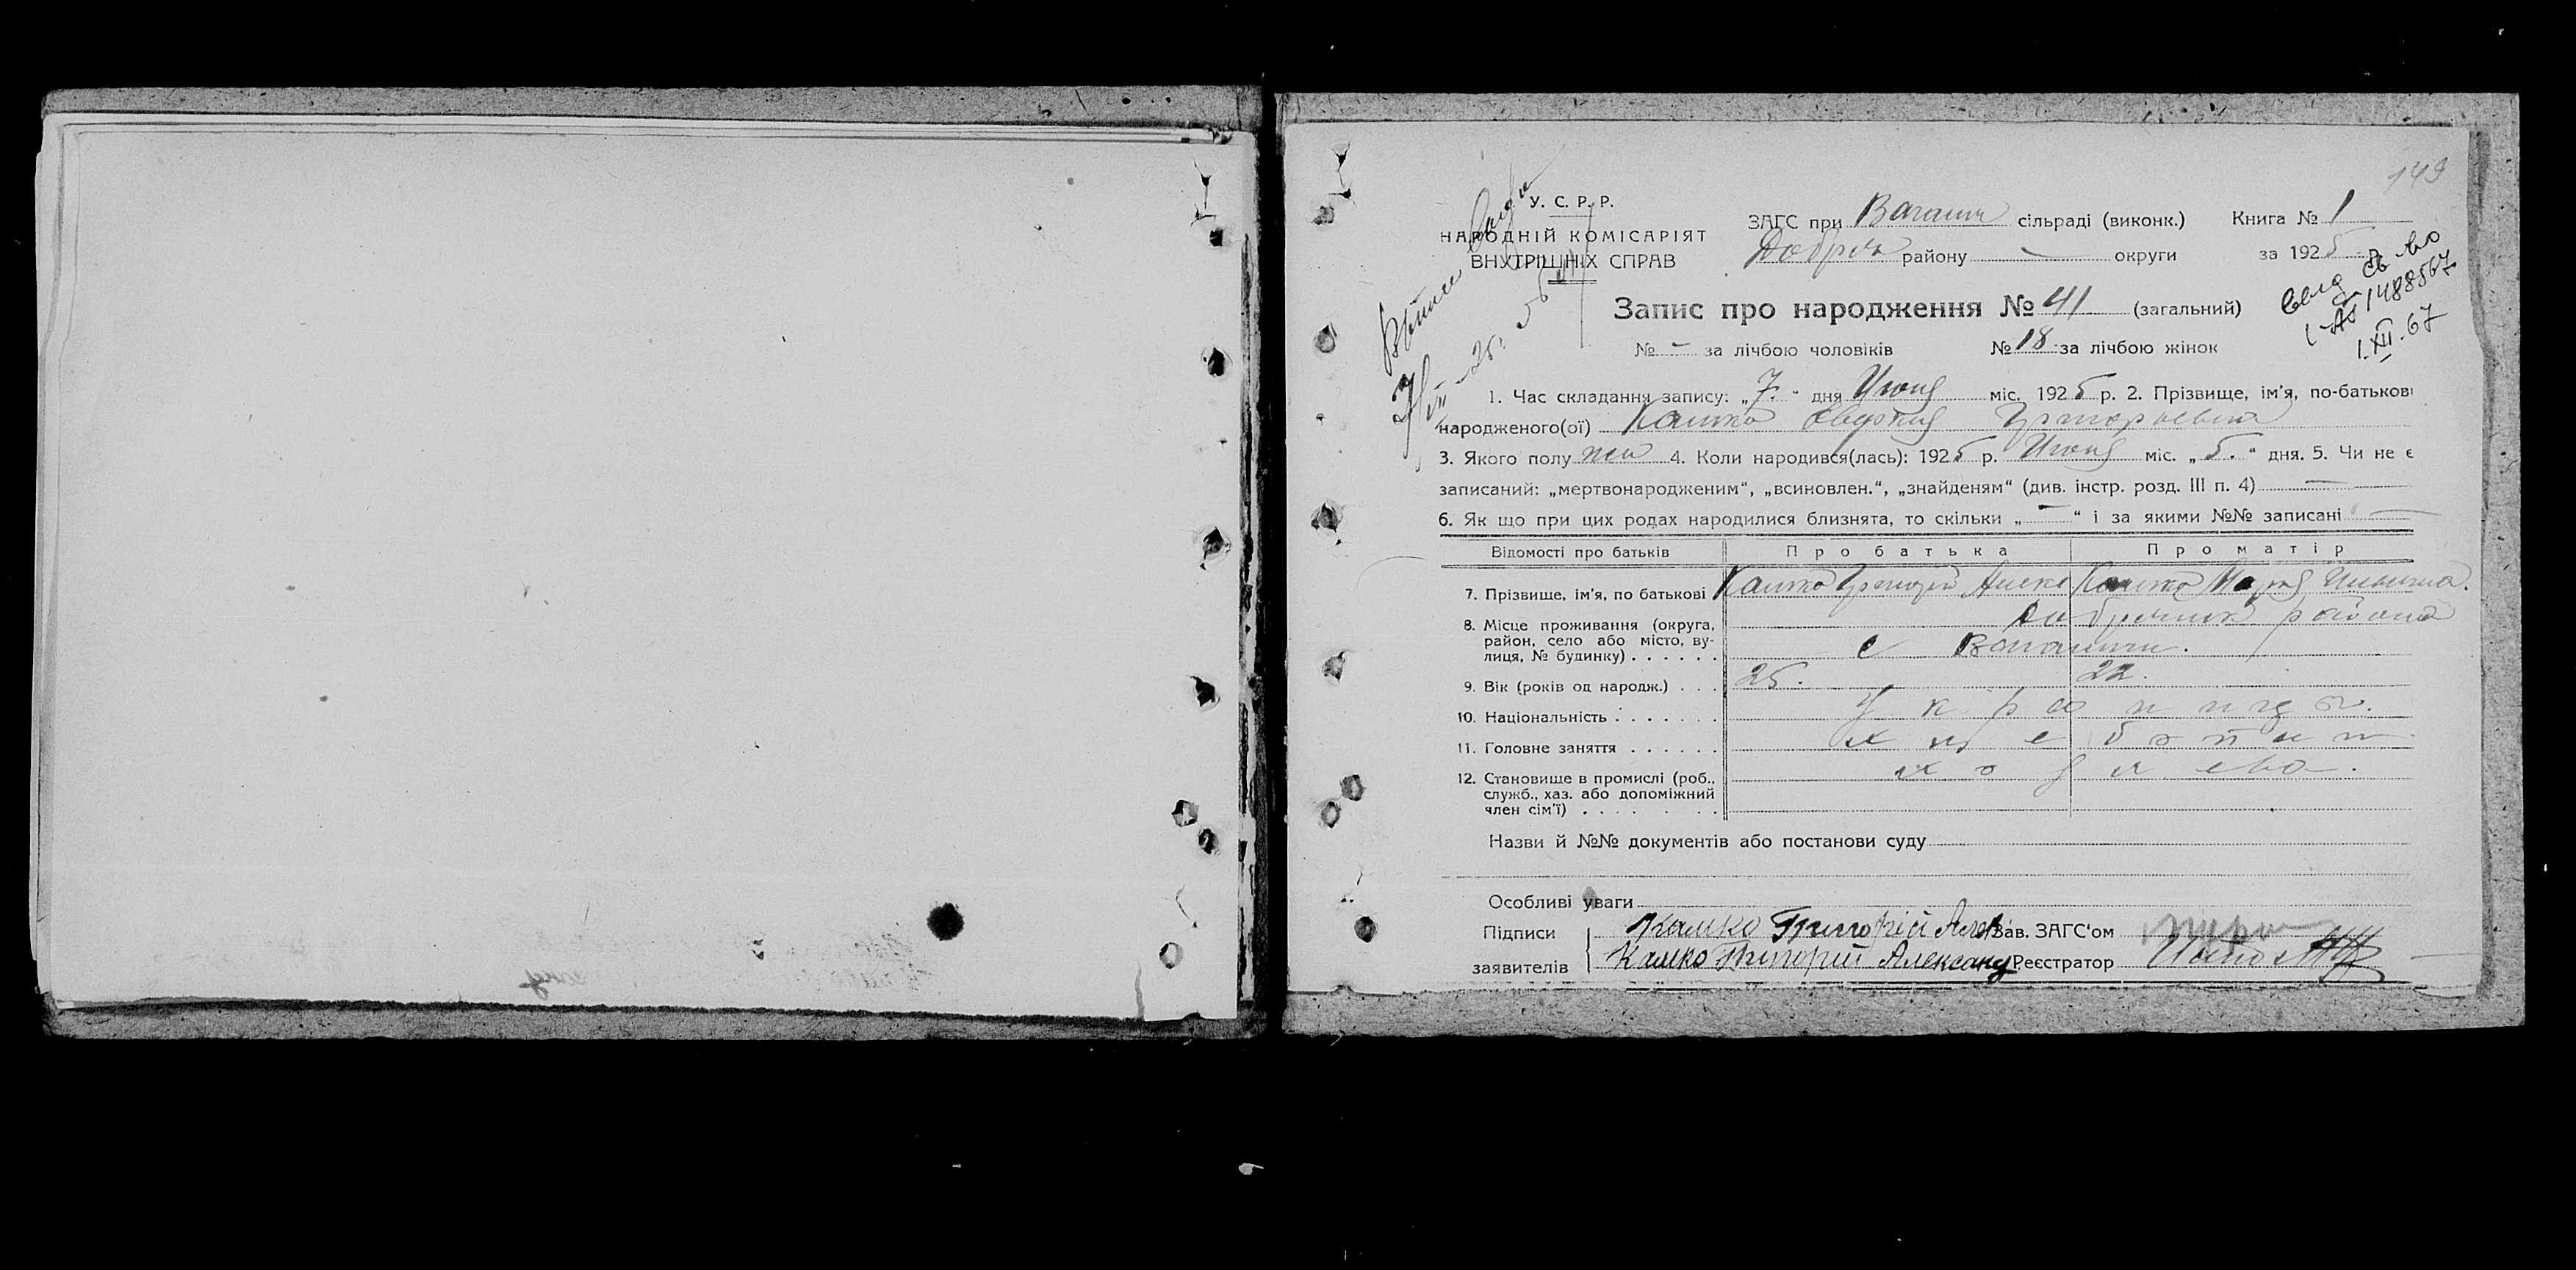 149
У. С. Р. Р.
НАРОДНІЙ КОМІСАРІЯТ
ВНУТРІШНІХ СПРАВ
ЗАГС при Вагани сільраді (виконк.) Книга № 1
району — округи за 1925 р.
св во
1488567
1.XII.67
Запис про народження № 41 (загальний)
№ - за лічбою чоловіків № 18 за лічбою жінок
1. Час складання запису: „7.“ дня Июня міс. 1925 р. 2. Прізвище, ім'я, по-батькові
народженого(ої) Камко Евдокия Григорьевна
3. Якого полу жен 4. Коли народився(лась): 1925 р. Июня міс. „5.“ дня. 5. Чи не є
записаний: „мертвонародженим“, „всиновлен.“, „знайденям“ (див. інстр. розд. III п. 4) —
6. Як що при цих родах народилися близнята, то скільки „—“ і за якими №№ записані —
Відомості про батьків Про батька Про матір
7. Прізвище, ім'я, по батькові Камко Григорій Алекс Камко Мария
8. Місце проживання (округа, район, село або місто, вулиця, № будинку) . . . . . . района
с
9. Вік (років од народж.) . . . 25. 22.
10. Національність . . . . . . . Украинцы.
11. Головне заняття . . . . . . хлебопаш
12. Становище в промислі (роб., служб., хаз. або допоміжний член сім'ї) . . . . . . .
Назви й №№ документів або постанови суду
Особливі уваги
Підписи Камко Григорій Алек Зав. ЗАГС'ом
заявителів Камко Григорий Александ Реєстратор